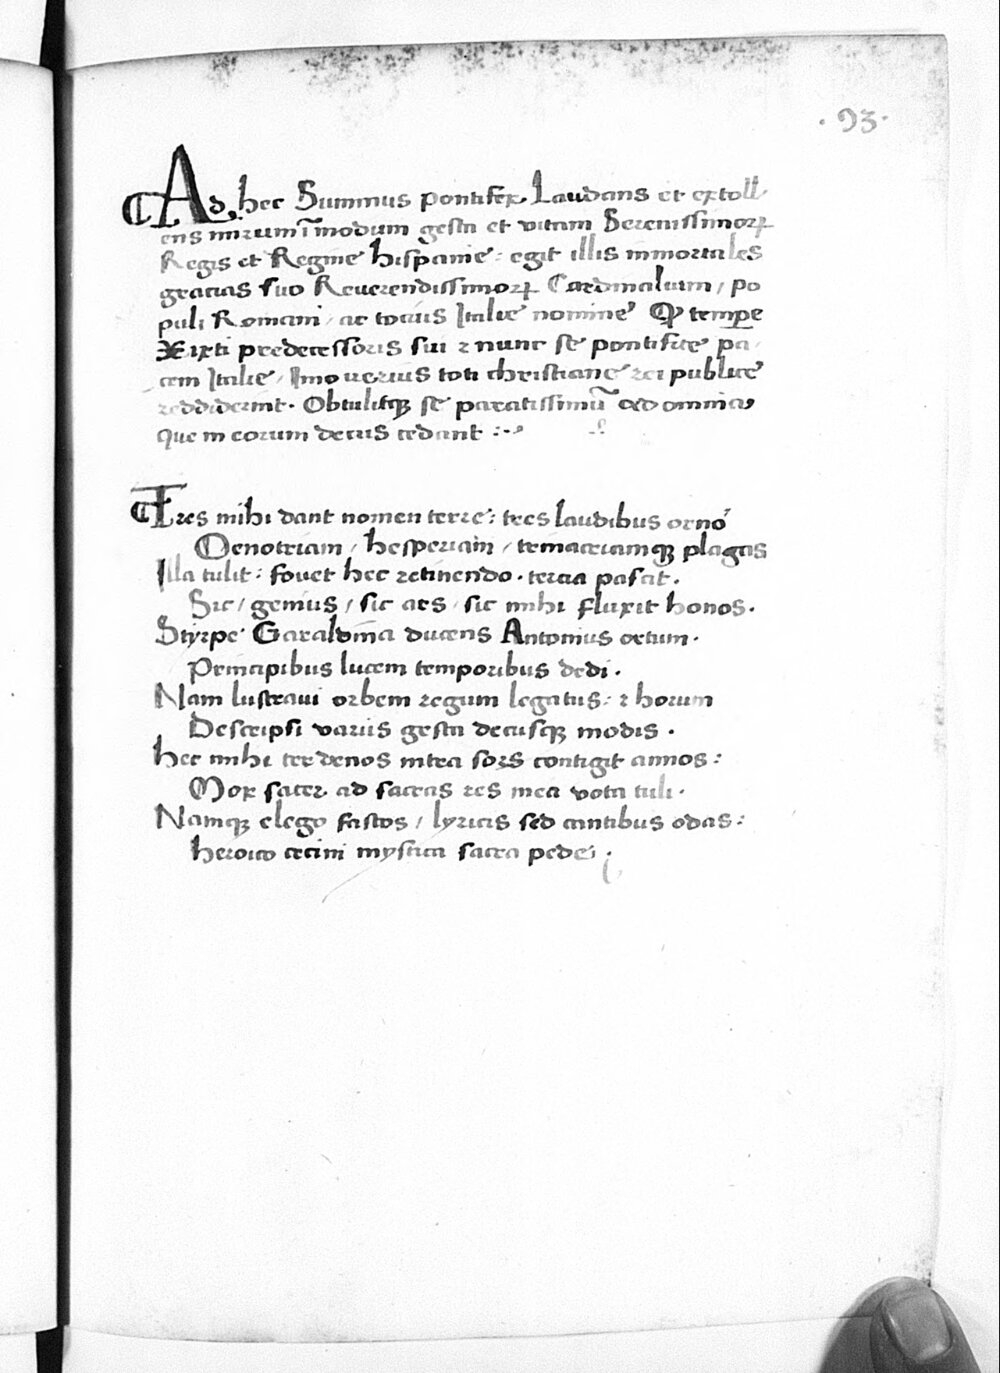 · 93 ·
Ad, hec Summus pontifex, Laudans et extoll
ens mirum ī modum gesta et vitam Serenissimoꝝ
Regis et Regine hispanie : egit illis inmortales
gracias suo Reuerendissimoꝝ Cardinalium / po
puli Romani / ac tocius Italie nomine Ꝙ tempe
Xixti predecessoris sui ⁊ nunc se pontifice pa
cem Italie / Imo uerius toti christiane rei publice
reddiderint · Obtulitqꝫ se paratissimū ad omnia
que in eorum decus cedant :~
Tres mihi dant nomen terre : tres laudibus orno
Oenotriam / hesperiam / trinacriamqꝫ plagas
Illa tulit : fouet hec retinendo · tercia pascit ·
Sic / genius / sic ars / sic mihi fluxit honos ·
Styrpe Garaldina ducens Antonius ortum ·
Principibus lucem temporibus dedi ·
Nam lustraui orbem regum legatus : ⁊ horum
Descripsi variis gesta decusqꝫ modis ·
hec mihi ter denos intra sors contigit annos :
Mox sacer ad sacras res mea vota tuli ·
Namqꝫ elego fastos / lyricis sed cantibus odas :
heroico cecini mystica sacra pede ·